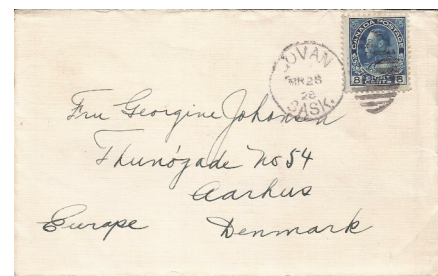 CANADA POSTAGE
5 5
GOVAN
MR 28
28
SASK.
Fru Georgine Johansen
Thunøgade No 54
Aarhus
Europe Denmark